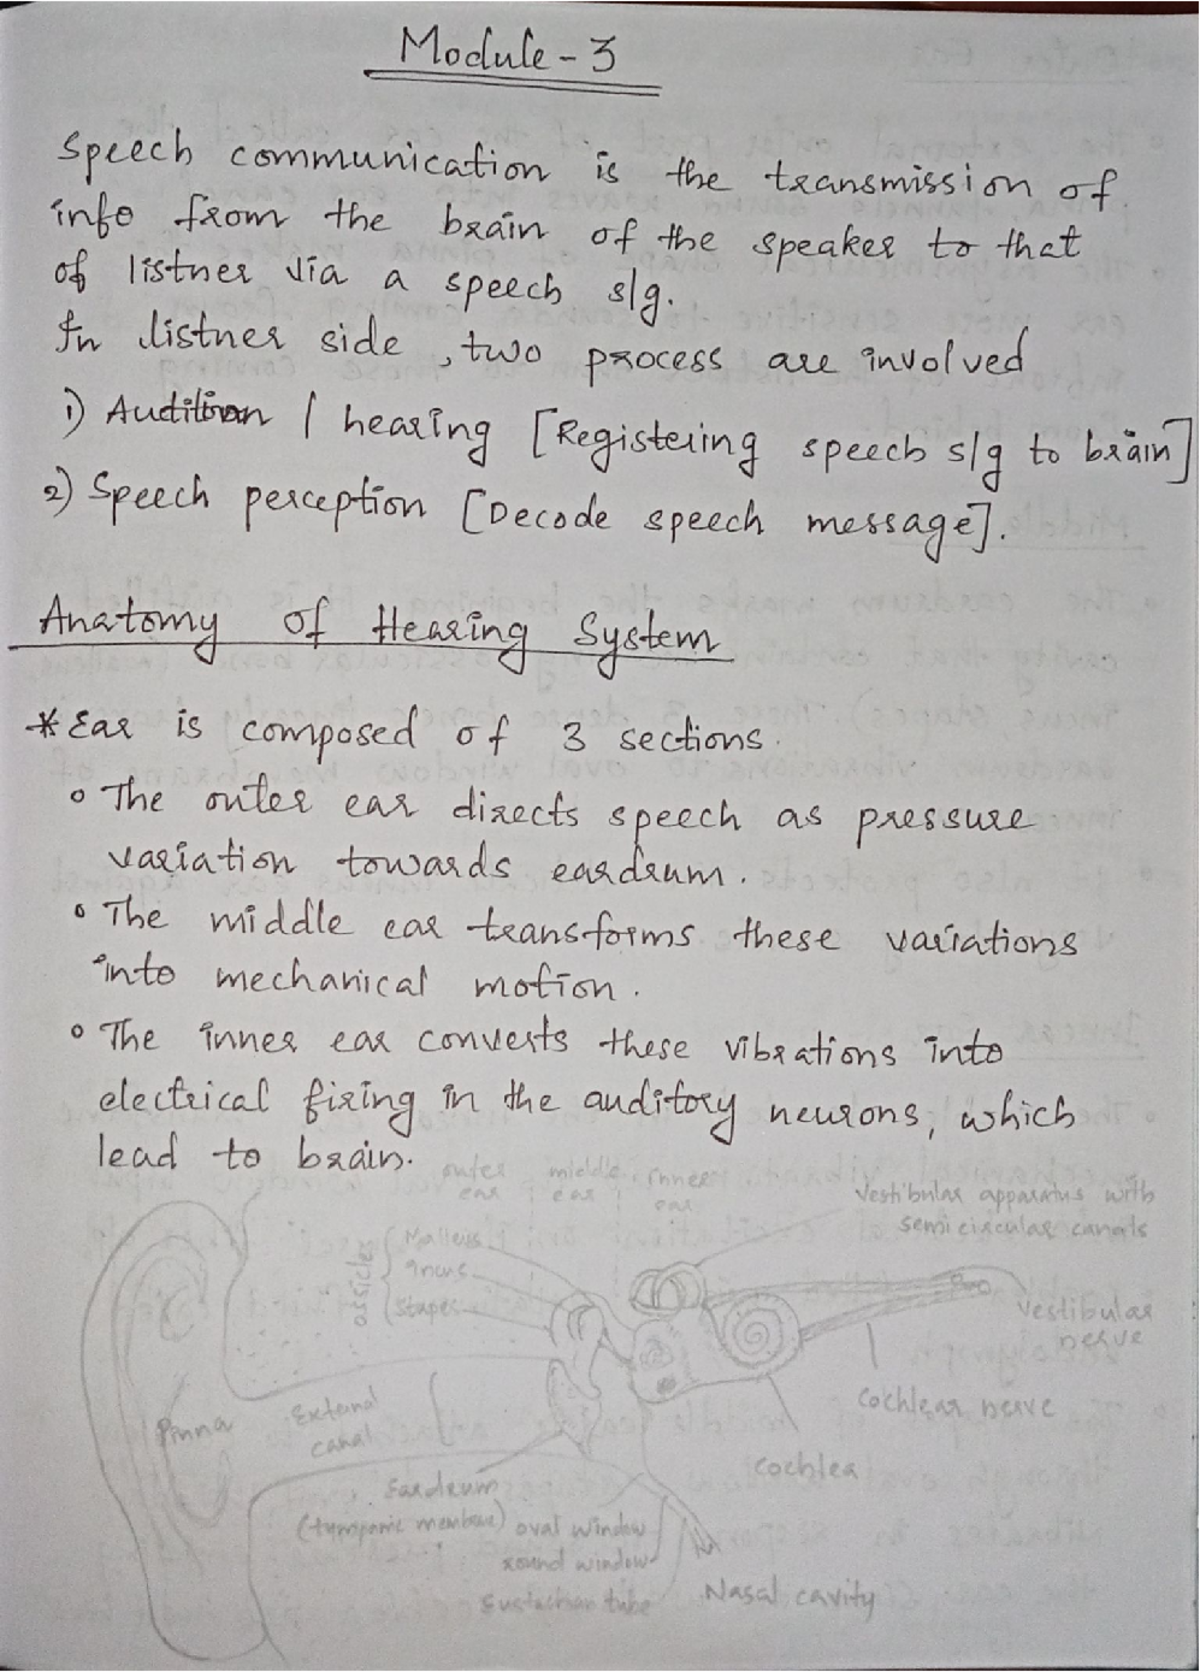 Module - 3
Speech communication is the transmission of
info from the brain of the speaker to that
of listner via a speech s/g.
In listner side , two process are involved
1) Audition / hearing [Registering speech s/g to brain]
2) Speech perception [Decode speech message].
Anatomy of Hearing System
* Ear is composed of 3 sections.
∘ The outer ear directs speech as pressure
variation towards eardrum.
∘ The middle ear transforms these variations
into mechanical motion.
∘ The inner ear converts these vibrations into
electrical firing in the auditory neurons, which
lead to brain.
outer ear
middle ear
inner ear
Vestibular apparatus with
semicircular canals
ossicles
Malleus
Incus
Stapes
Vestibular
nerve
Pinna
External
canal
Cochlear nerve
Cochlea
Eardrum
(tympanic membrane)
oval window
round window
Eustachian tube
Nasal cavity